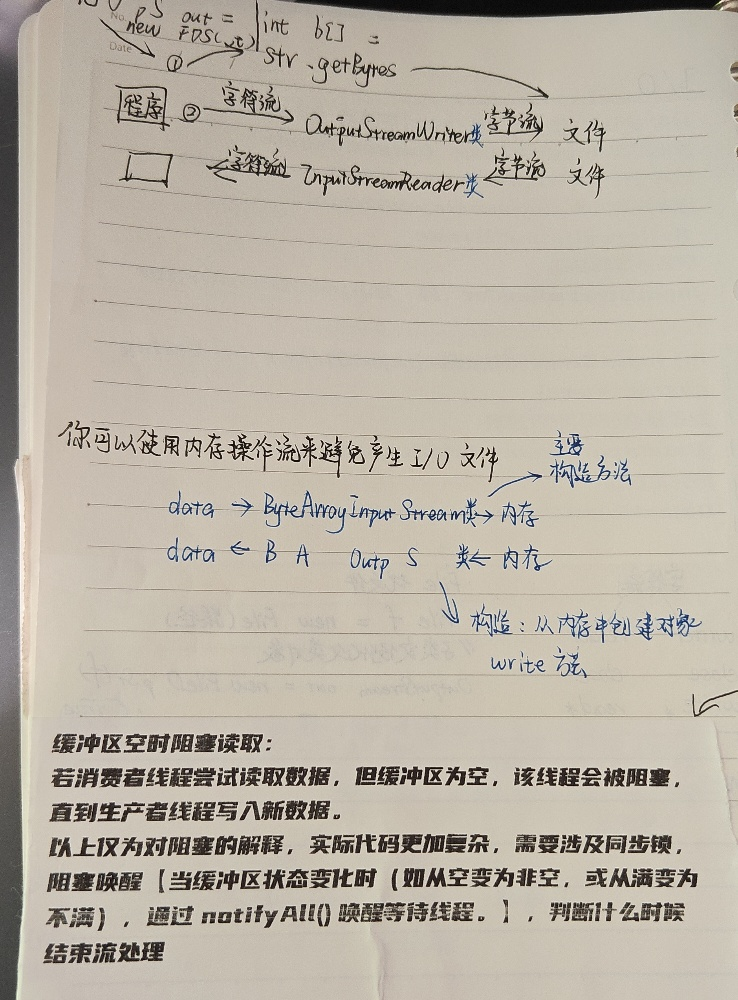 PS out =
new FOS(out)
int b[] =
str.getBytes
No.
Date
①
程序 ② 字符流 OutputStreamWriter类 字节流 文件
字符流 InputStreamReader类 字节流 文件
你可以使用内存操作流来避免产生 I/O 文件
主要
构造方法
data → ByteArrayInputStream类→ 内存
data ← B A Outp S 类← 内存
构造：从内存中创建对象
write 方法
缓冲区空时阻塞读取：
若消费者线程尝试读取数据，但缓冲区为空，该线程会被阻塞，
直到生产者线程写入新数据。
以上仅为对阻塞的解释，实际代码更加复杂，需要涉及同步锁，
阻塞唤醒【当缓冲区状态变化时（如从空变为非空，或从满变为
不满），通过 notifyAll() 唤醒等待线程。】，判断什么时候
结束流处理